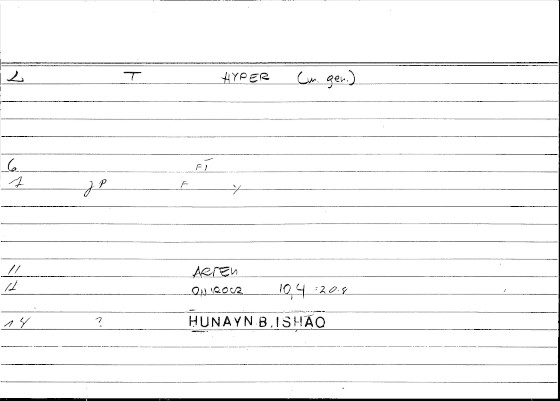 2 T HYPER (w. gen.)
6 FT
7 JP F Y
11 ARTEM
12 ONIROCR 10,4 :20.8
14 ? HUNAYN B. ISHAQ